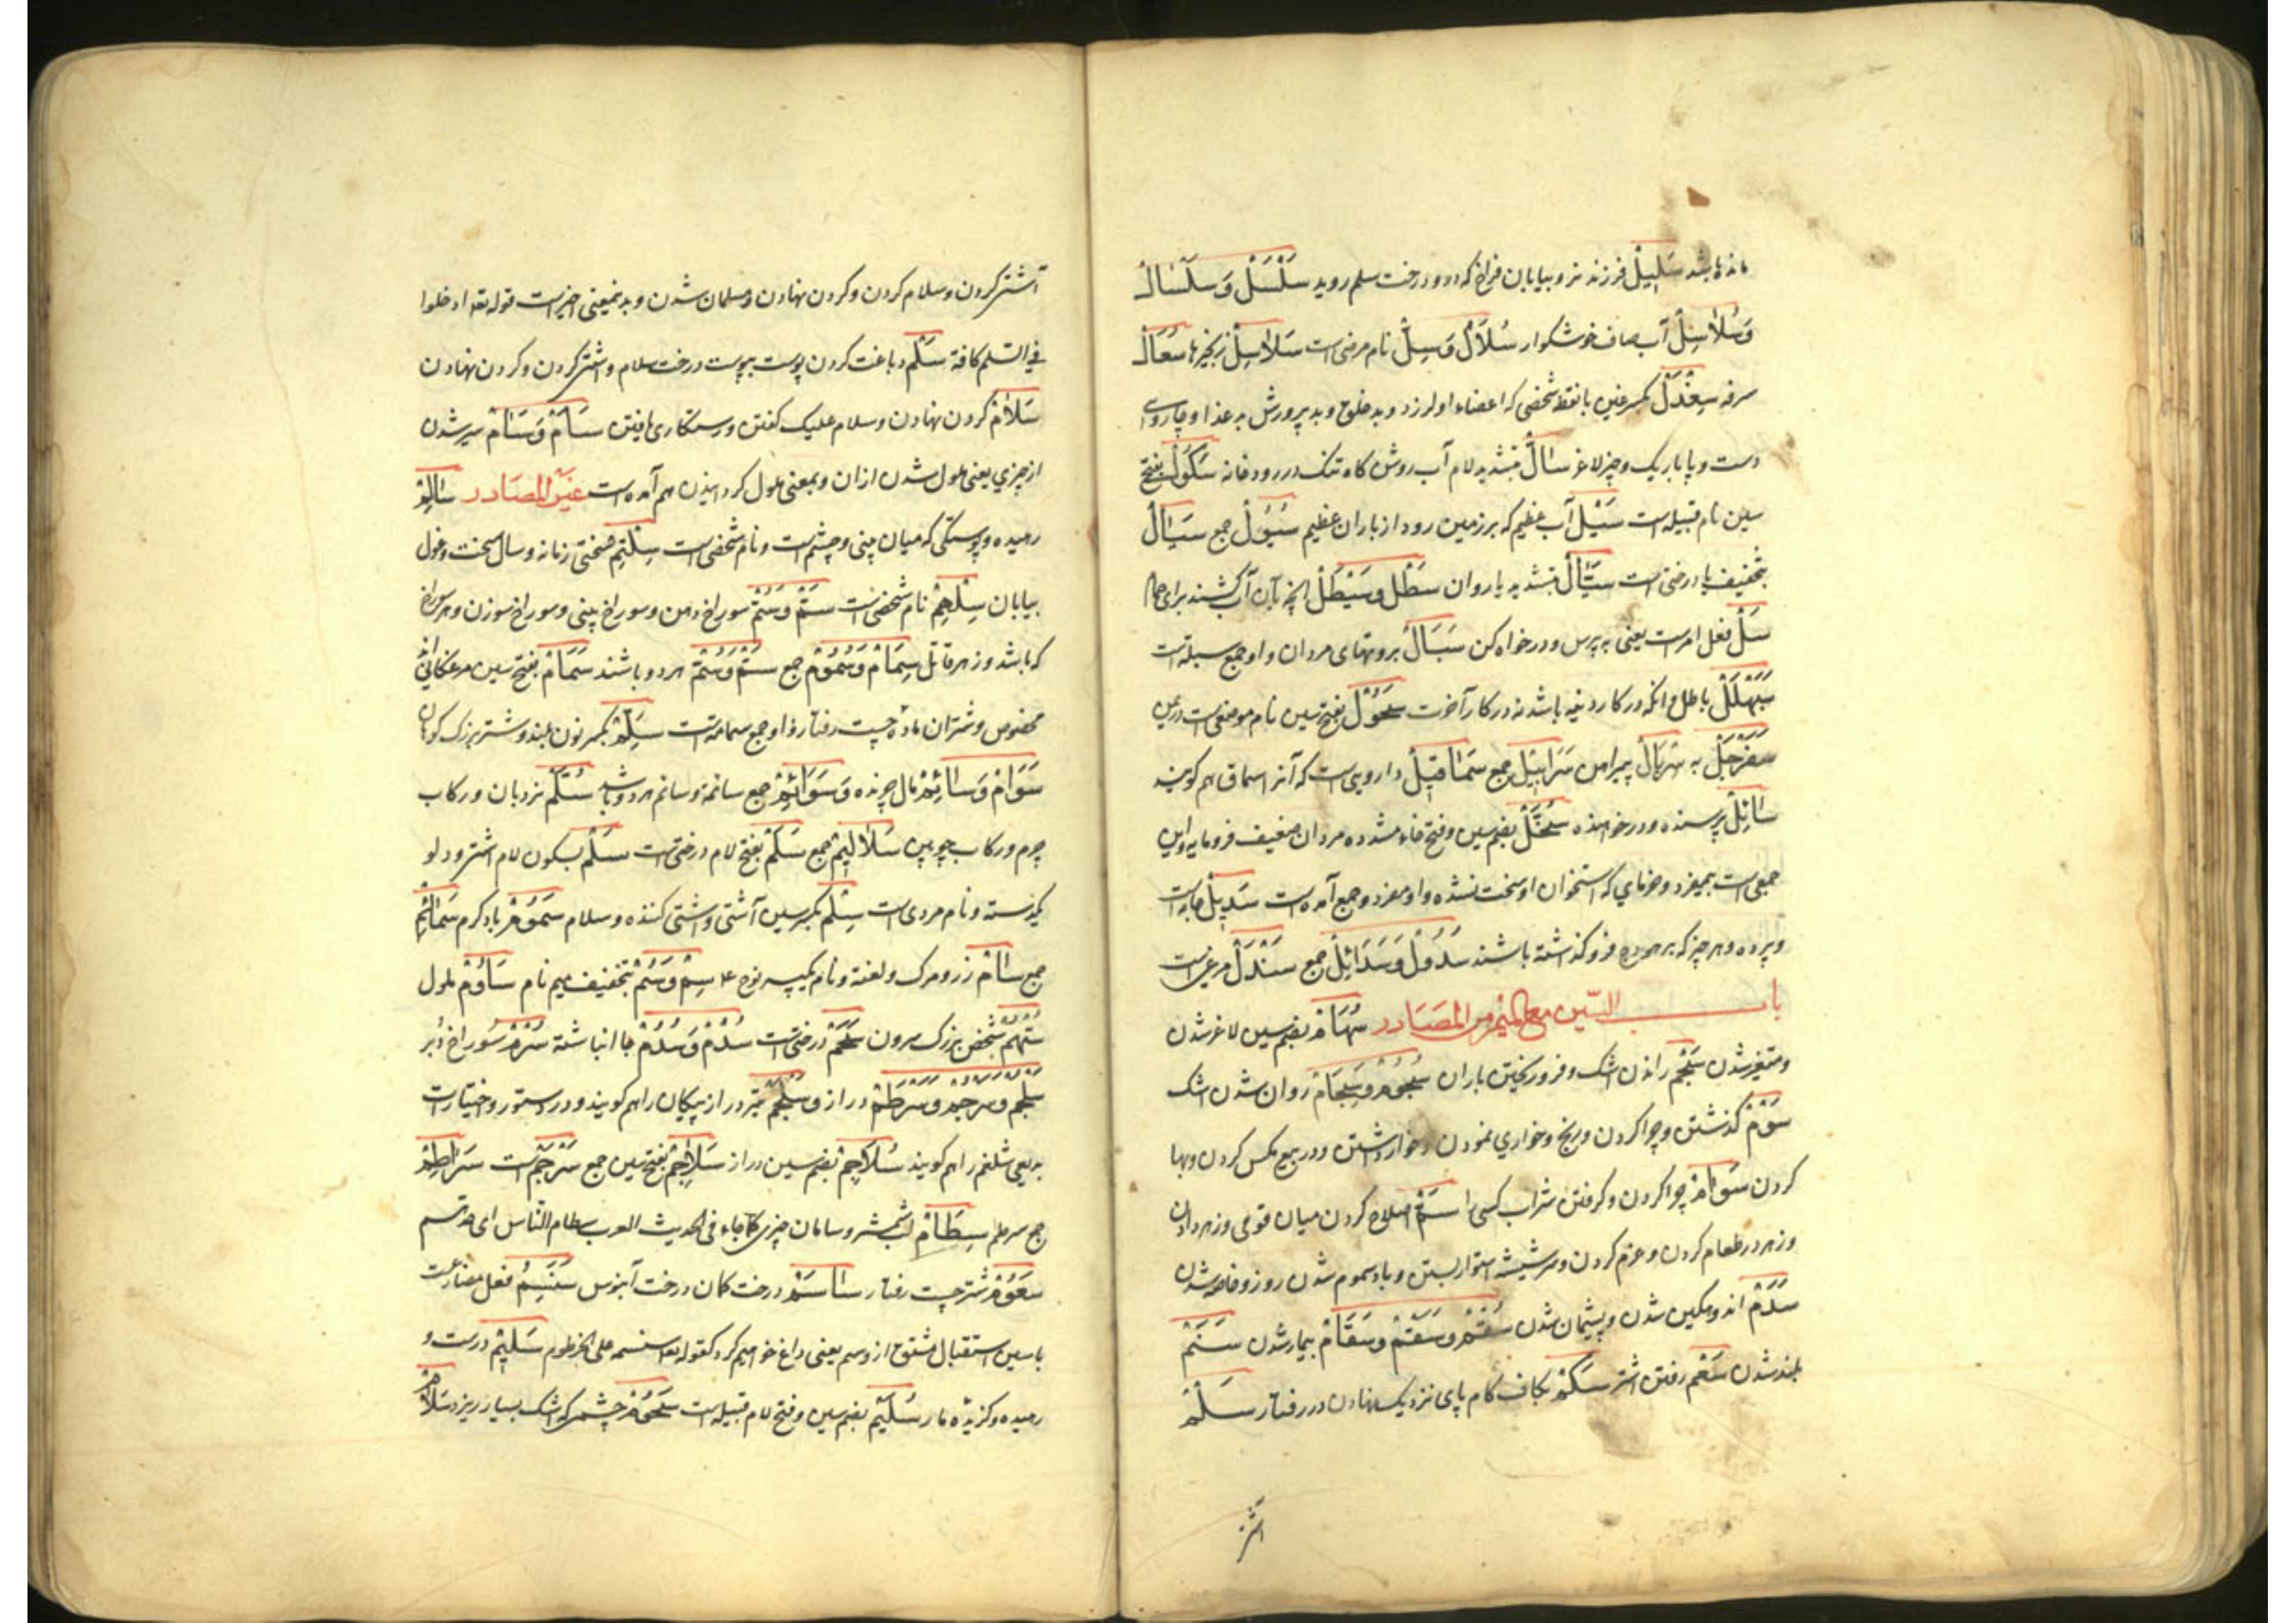 مانده باشد سَلِیلْ فرزند نر و بیابان فراخ که درو درخت سلم روید سَلْسَلْ وَ سَلْسَالْ
وَ سُلَاسِلْ آب صاف خوشکوار سُلَالْ وَ سِلْ نام مرضی است سَلَاسِلْ زنجیرها سُعَالْ
سرفه سِغْدَلْ بکسر غین با نقطه شخصی که اعضاء او لرزد و بد خلق و بد پرورش به غذا و چاروای
دست و پا باریک و چیز لاغر سَالّْ بتشدید لام آب روش کاه تنک در رودخانه سَکُولْ بفتح
سین نام قبیله است سَیْلْ آب عظیم که بر زمین رود از باران عظیم سُیُولْ جمع سَیَالْ
بتخفیف یا درختی است سَیَّالْ بتشدید یا روان سَطْلْ وَ سَیْطَلْ انچه بآن آب کشند برای حمام
سَلْ فعل امرست یعنی به پرس و درخواه کن سَبَالْ بروتهای مردان و او جمع سبله است
سَبَهْلَلْ باطل و انکه در کار دنیا باشد نه در کار آخرت سَحُولْ بفتح سین نام موضعی است در یمن
سَفَرْجَلْ به سِرْبَالْ پیراهن سَرَابِیلْ جمع سَمَاقِیلْ داروییست که آنرا سماق هم کویند
سَائِلْ پرسنده و درخواهنده سُخَّلْ بضم سین و فتح خاء مشدده مردان ضعیف فرومایه و این
جمعی است بیمفرد و خرمای که استخوان او سخت نشده و او مفرد و جمع آمده است سَدِیلْ جامه است
و پرده و هر چیز که بر هودج فرو کذاشته باشند سُدُولْ وَ سَدَائِلْ جمع سَنْدَلْ مرغیست
باب السّین مع المیم من المصَادر سُهَامْ بضم سین لاغر شدن
و متغیر شدن سَجْمْ راندن اشک و فرو ریختن باران سُجُومْ وَ سِجَامْ روان شدن اشک
سَوْمْ کذشتن و چرا کردن و رنج و خواری نمودن و خوار داشتن و در بیع مکس کردن و بها
کردن سَوَامْ چرا کردن و کرفتن شراب کسی را سَمّْ اصلاح کردن میان قومی و زهر دادن
و زهر در طعام کردن و عزم کردن و سر شیشه استوار بستن و باد سموم شدن روز و خاص شدن
سَدَمْ اندوهکین شدن و پشیمان شدن سُقْمْ وَ سَقَمْ وَ سَقَامْ بیمار شدن سَنَمْ
بلند شدن سَعْمْ رفتن اشتر سَکْمْ بکاف کام پای نزدیک نهادن در رفتار سَلْمْ
اشتر
آشتی کردن و سلام کردن و کردن نهادن و مسلمان شدن و بدینمعنی اخیرست قوله تعه ادخلوا
فی السلم کافة سَلْمْ دباغت کردن پوست بپوست درخت سلام و اشتی کردن و کردن نهادن
سَلَامْ کردن نهادن و سلام علیک کفتن و رستکاری یافتن سَأَمْ وَ سَآمْ سیر شدن
از چیزی یعنی ملول شدن از ان و بمعنی ملول کردانیدن هم آمده است غیر المصَادر سَالِمْ
رهیده و پوستکی که میان بینی و چشمست و نام شخصی است سِلْتِمْ سختی زمانه و سال سخت و غول
بیابان سِلْهِمْ نام شخصی است سَمّْ وَ سُمّْ سوراخ دهن و سوراخ بینی و سوراخ سوزن و هر سوراخ
که باشد و زهر قاتل سِمَامْ وَ سُمُومْ جمع سَمّْ وَ سُمّْ هر دو باشند سَمَامْ بفتح سین مرغکانی اند
مخصوص و شتران ماده چست رفتار و او جمع سمامه است سَنِمْ بکسر نون بلند و شتر بزرک کوهان
سَوَامْ وَ سَائِمْ مال چرنده وَ سَوَائِمْ جمع سائمه و سائم هر دو باشد سُلَّمْ نردبان و رکاب
چرم و رکاب چوبین سَلَالِیمْ جمع سَلَمْ بفتح لام درختی است سَلْمْ بسکون لام اشتر و دلو
یکدسته و نام مردی است سِلْمْ بکسر سین آشتی و اشتی کننده و سلام سَمُومْ باد کرم سَمَائِمْ
جمع سَامْ زر و مرک و لعنة و نام یکپسر نوح ع سِمْ وَ سُمْ بتخفیف میم نام سَؤُومْ ملول
سُتْهُمْ شخص بزرک سرون سَحَمْ درختی است سُدْمْ وَ سُدُمْ چاه انباشته سُرْمْ سوراخ دبر
سَلْجَمْ و سرجم وَ سَرْطَمْ دراز وَ سَلْجَمْ تیر دراز پیکان را هم کویند و در دستور و اختیارات
بدیعی شلغم را هم کویند سُلَاجِمْ بضم سین دراز سَلَاجِمْ بفتح سین جمع سَرْجَمْ است سَرَاطِمْ
جمع سرطم سِطَامْ لب شمشیر و سامان چیزی کما جاء فی الحدیث العرب سطام الناس ای حدّتهم
سَعُومْ شتر چست رفتار سَاسَمْ درخت کمان و درخت آبنوس سَنَسِمُ فعل مضارعست
با سین استقبال مشتق از وسم یعنی داغ خواهیم کرد کقوله تعه سنسمه علی الخرطوم سَلِیمْ درست و
رهیده و کزیده مار سُلَیْمْ بضم سین و فتح لام قبیله است سَجُومْ چشمی که اشک بسیار ریزد سَلَامْ